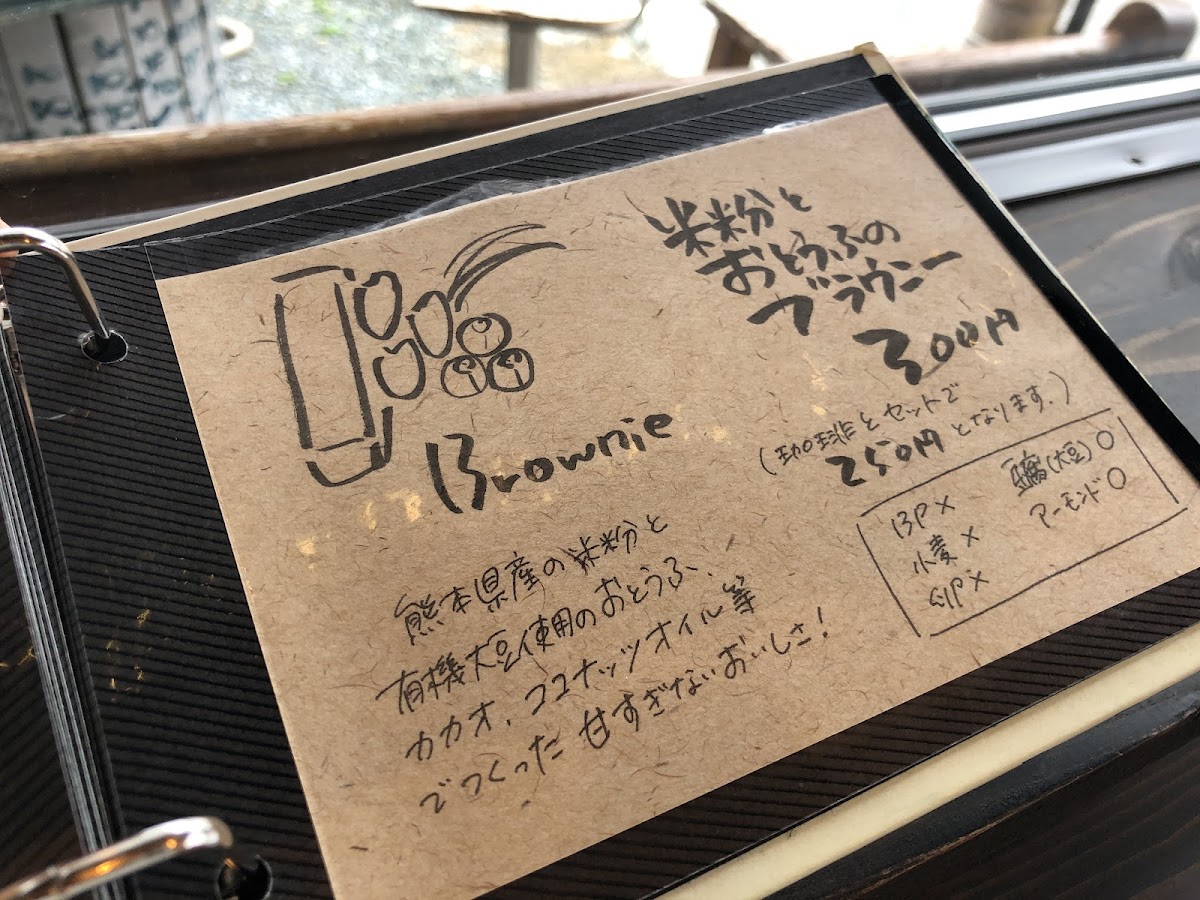 米粉と
おとうふの
ブラウニー
300円
(珈琲とセットで
250円となります。)
BP×
小麦×
卵×
豆腐(大豆)○
アーモンド○
Brownie
熊本県産の米粉と
有機大豆使用のおとうふ、
カカオ、ココナッツオイル等
でつくった甘すぎないおいしさ!